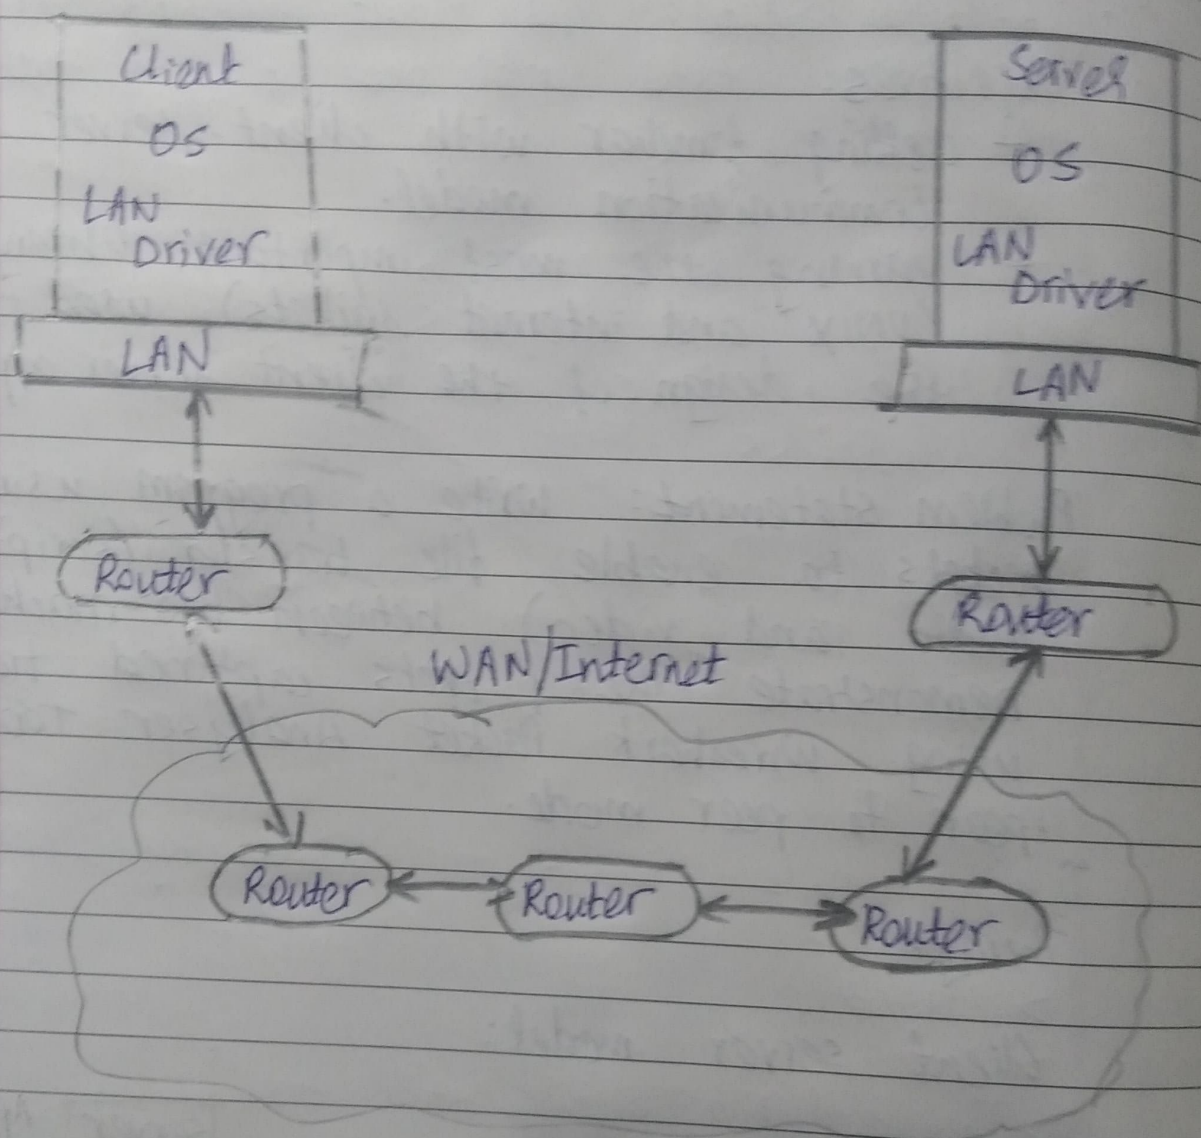 Client
OS
LAN
Driver
LAN
Router
Server
OS
LAN
Driver
LAN
Router
WAN/Internet
Router
Router
Router